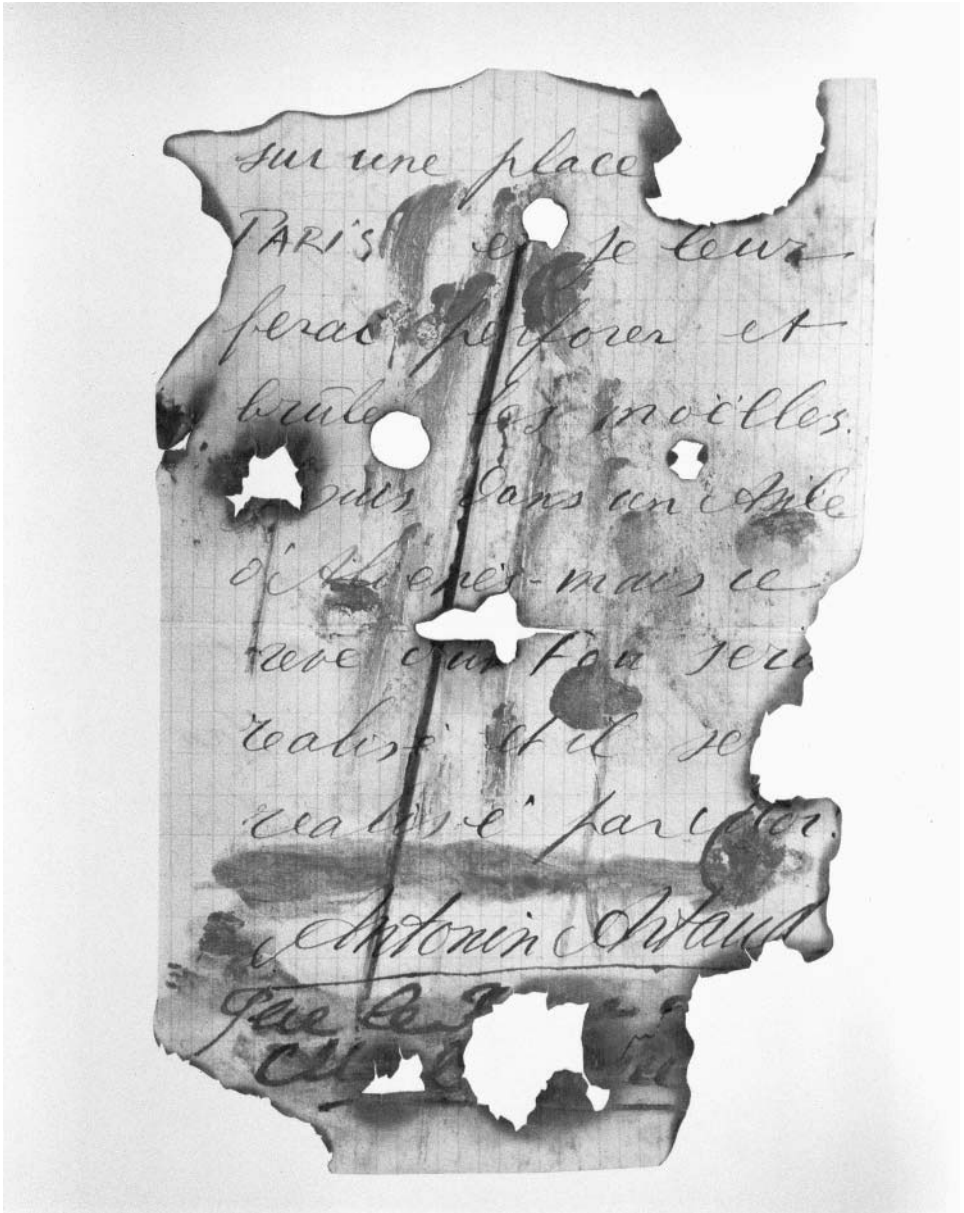 sur une place
PARIS et je leur
ferai perforer et
brûler les moëlles.
suis dans un Asile
d'Aliénés - mais ce
reve d'un Fou sera
realisé et il se
realisé par moi.
Antonin Artaud
Que les